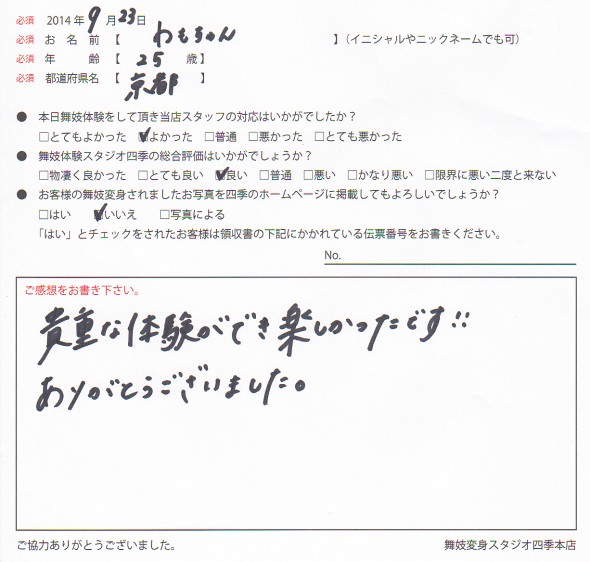 必須 2014年 9月 23日
必須 お名前【 わもちゃん 】(イニシャルやニックネームでも可)
必須 年 齢【 25 歳】
必須 都道府県名【 京都 】
● 本日舞妓体験をして頂き当店スタッフの対応はいかがでしたか？
□とてもよかった ☑よかった □普通 □悪かった □とても悪かった
● 舞妓体験スタジオ四季の総合評価はいかがでしょうか？
□物凄く良かった □とても良い ☑良い □普通 □悪い □かなり悪い □限界に悪い二度と来ない
● お客様の舞妓変身されましたお写真を四季のホームページに掲載してもよろしいでしょうか？
□はい ☑いいえ □写真による
「はい」とチェックをされたお客様は領収書の下記にかかれている伝票番号をお書きください。
No.
ご感想をお書き下さい。
貴重な体験ができ楽しかったです!!
ありがとうございました。
ご協力ありがとうございました。 舞妓変身スタジオ四季本店